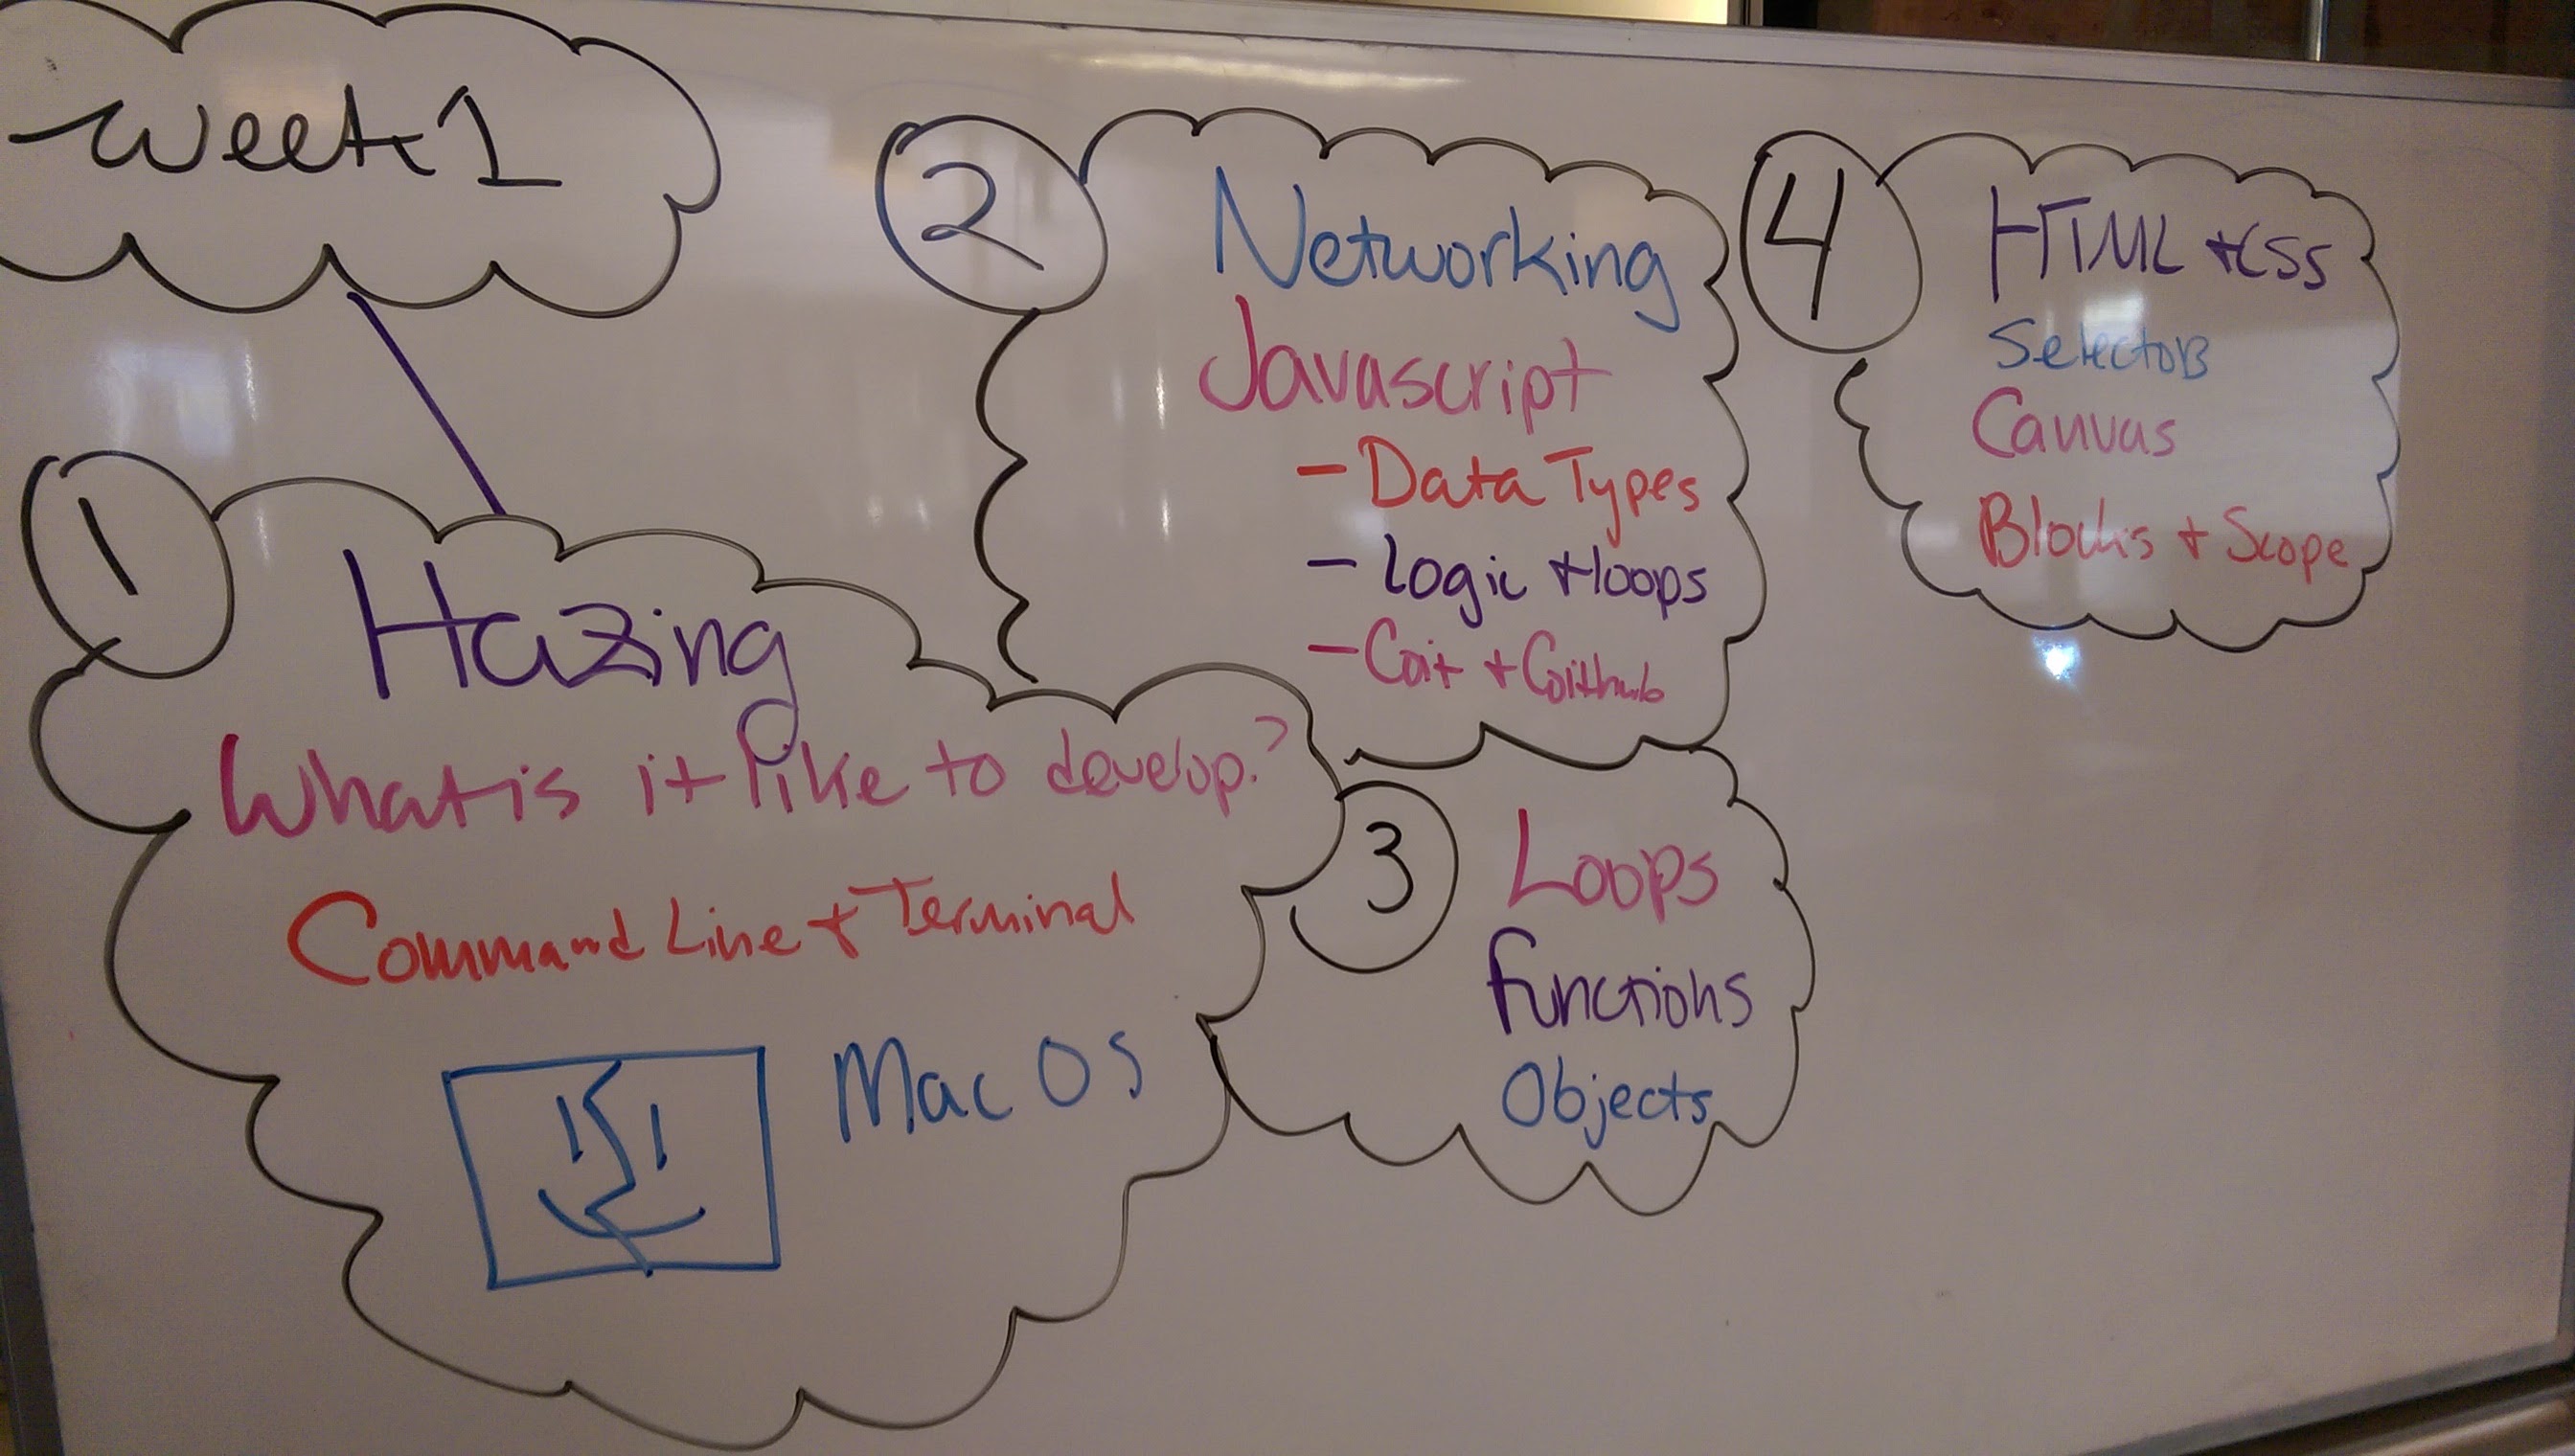 Week 1
1
Hazing
What is it like to develop?
Command Line + Terminal
Mac OS
2
Networking
Javascript
- Data Types
- Logic + loops
- Git + Github
3
Loops
Functions
Objects
4
HTML + CSS
Selectors
Canvas
Blocks + Scope